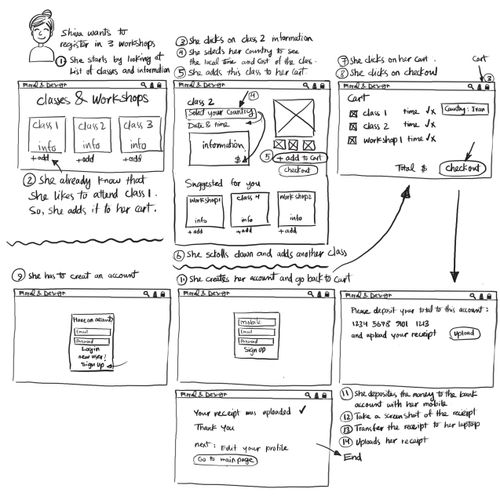 Shira wants to
register in 3 workshops
① She starts by looking at
List of classes and information
classes & workshops
class 1
info
+add
class 2
info
+add
class 3
info
+add
② She already know that
She likes to attend class 1.
So, she adds it to her cart.
③ She clicks on class 2 information
④ She selects her country to see
the local time and cost of the class.
⑤ She adds this class to her cart
class 2
Select your Country
④
Date & time
information
$
⑤ + add to cart
checkout
Suggested for you
workshop1
info
+add
class 4
info
+add
workshop2
info
+add
⑥ She scrolls down and adds another class
⑦ She clicks on her cart.
⑧ She clicks on checkout
Cart
Cart
Country: Iran
class 1 time ✓x
class 2 time ✓x
workshop1 time ✓x
Total $
checkout
⑨ She has to creat an account
Have an account
Email
Password
Login
new user!
Sign up
She creates her account and go back to Cart
mobile
Email
Password
Sign up
Please deposit your total to this account:
1234 5678 9101 1213
and upload your receipt
upload
⑪ She deposites the money to the bank
account with her mobile
⑫ Take a screenshot of the receipt
⑬ Transfer the receipt to her laptop
⑭ Uploads her receipt
Your receipt was uploaded ✓
Thank you
next: Edit your profile
Go to main page
End